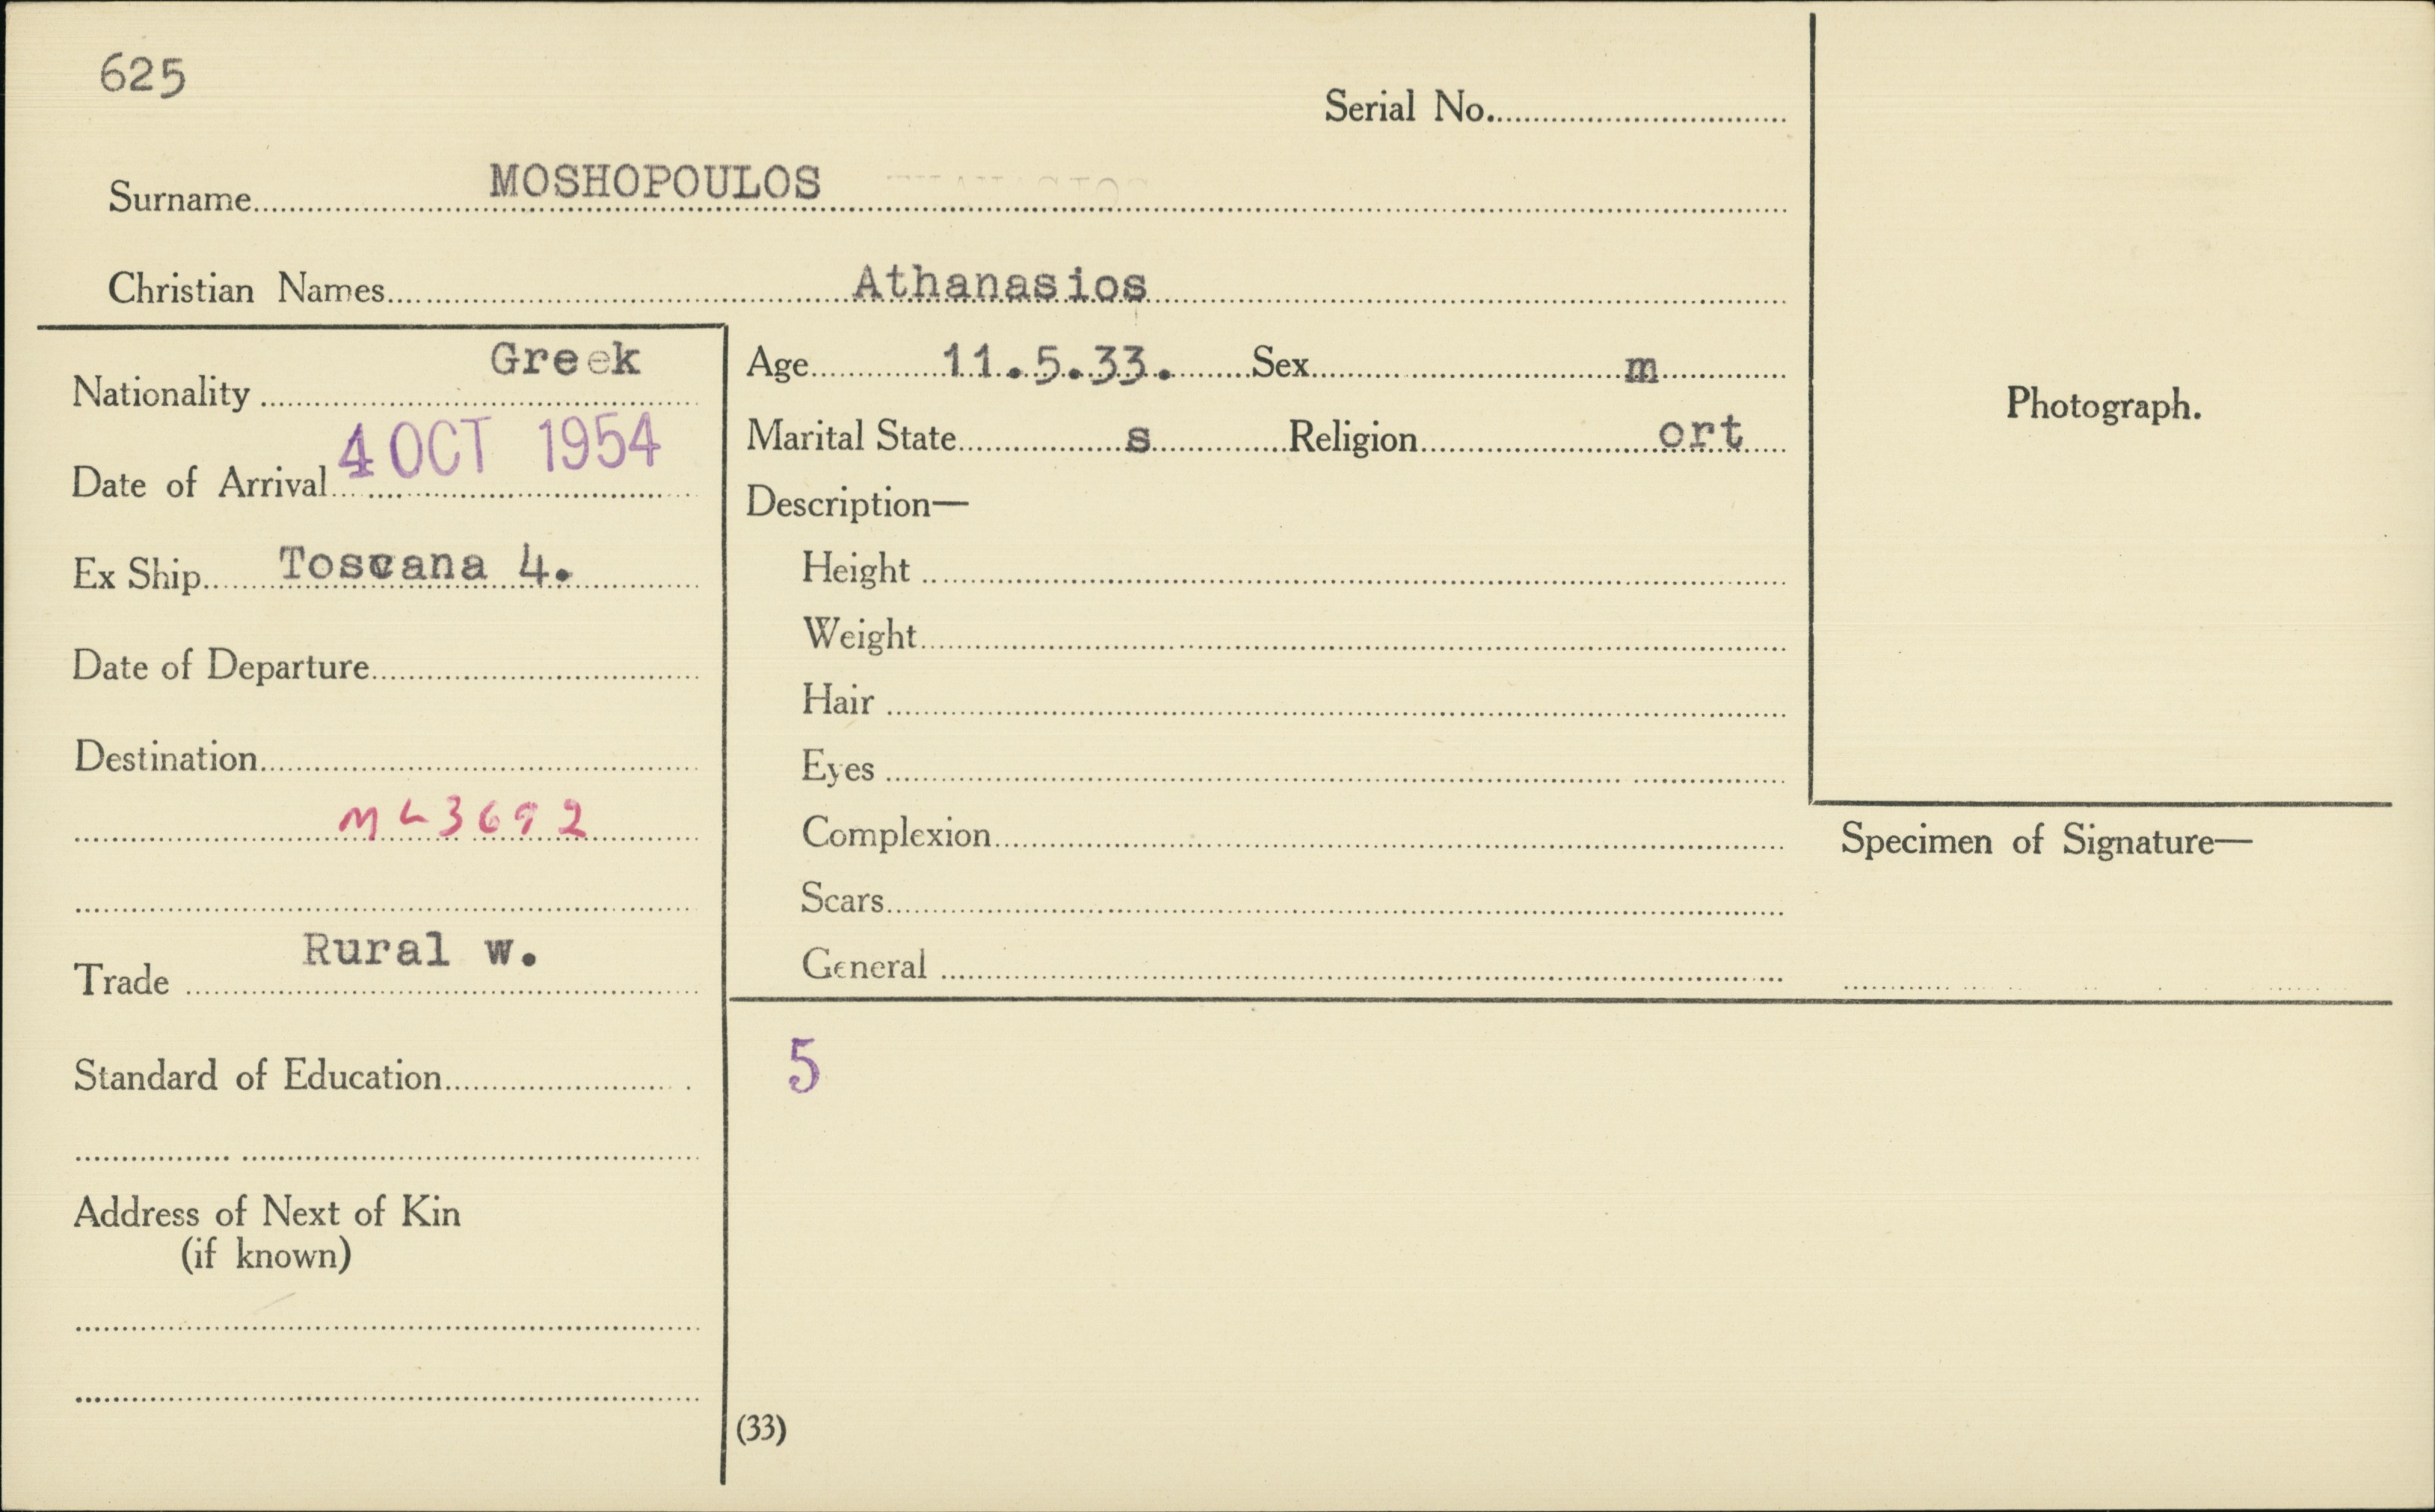 625
Serial No.
Surname MOSHOPOULOS
Christian Names Athanasios
Nationality Greek
Date of Arrival 4 OCT 1954
Ex Ship Toscana 4.
Date of Departure
Destination
ML3692
Trade Rural w.
Standard of Education
Address of Next of Kin
(if known)
Age 11.5.33. Sex m
Marital State s Religion ort
Description—
Height
Weight
Hair
Eyes
Complexion
Scars
General
5
(33)
Photograph.
Specimen of Signature—